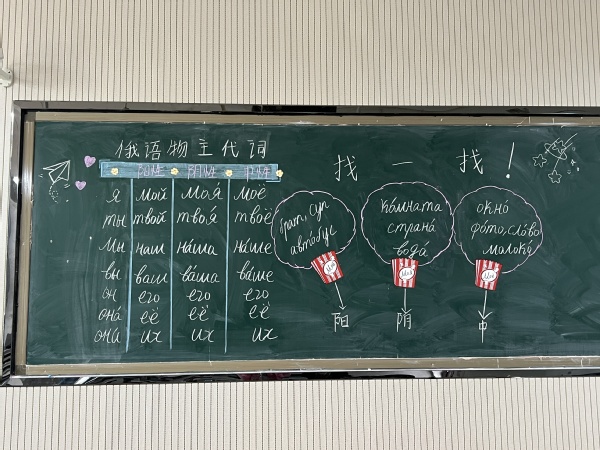 俄语物主代词
阳性 阴性 中性
я мой моя́ моё
ты твой твоя́ твоё
мы наш на́ша на́ше
вы ваш ва́ша ва́ше
он его его его
она́ её её её
они́ их их их
找一找！
брат, суп
авто́бус
ко́мната
страна́
вода́
окно́
фо́то, сло́во
молоко́
мой
моя
моё
阳
阴
中